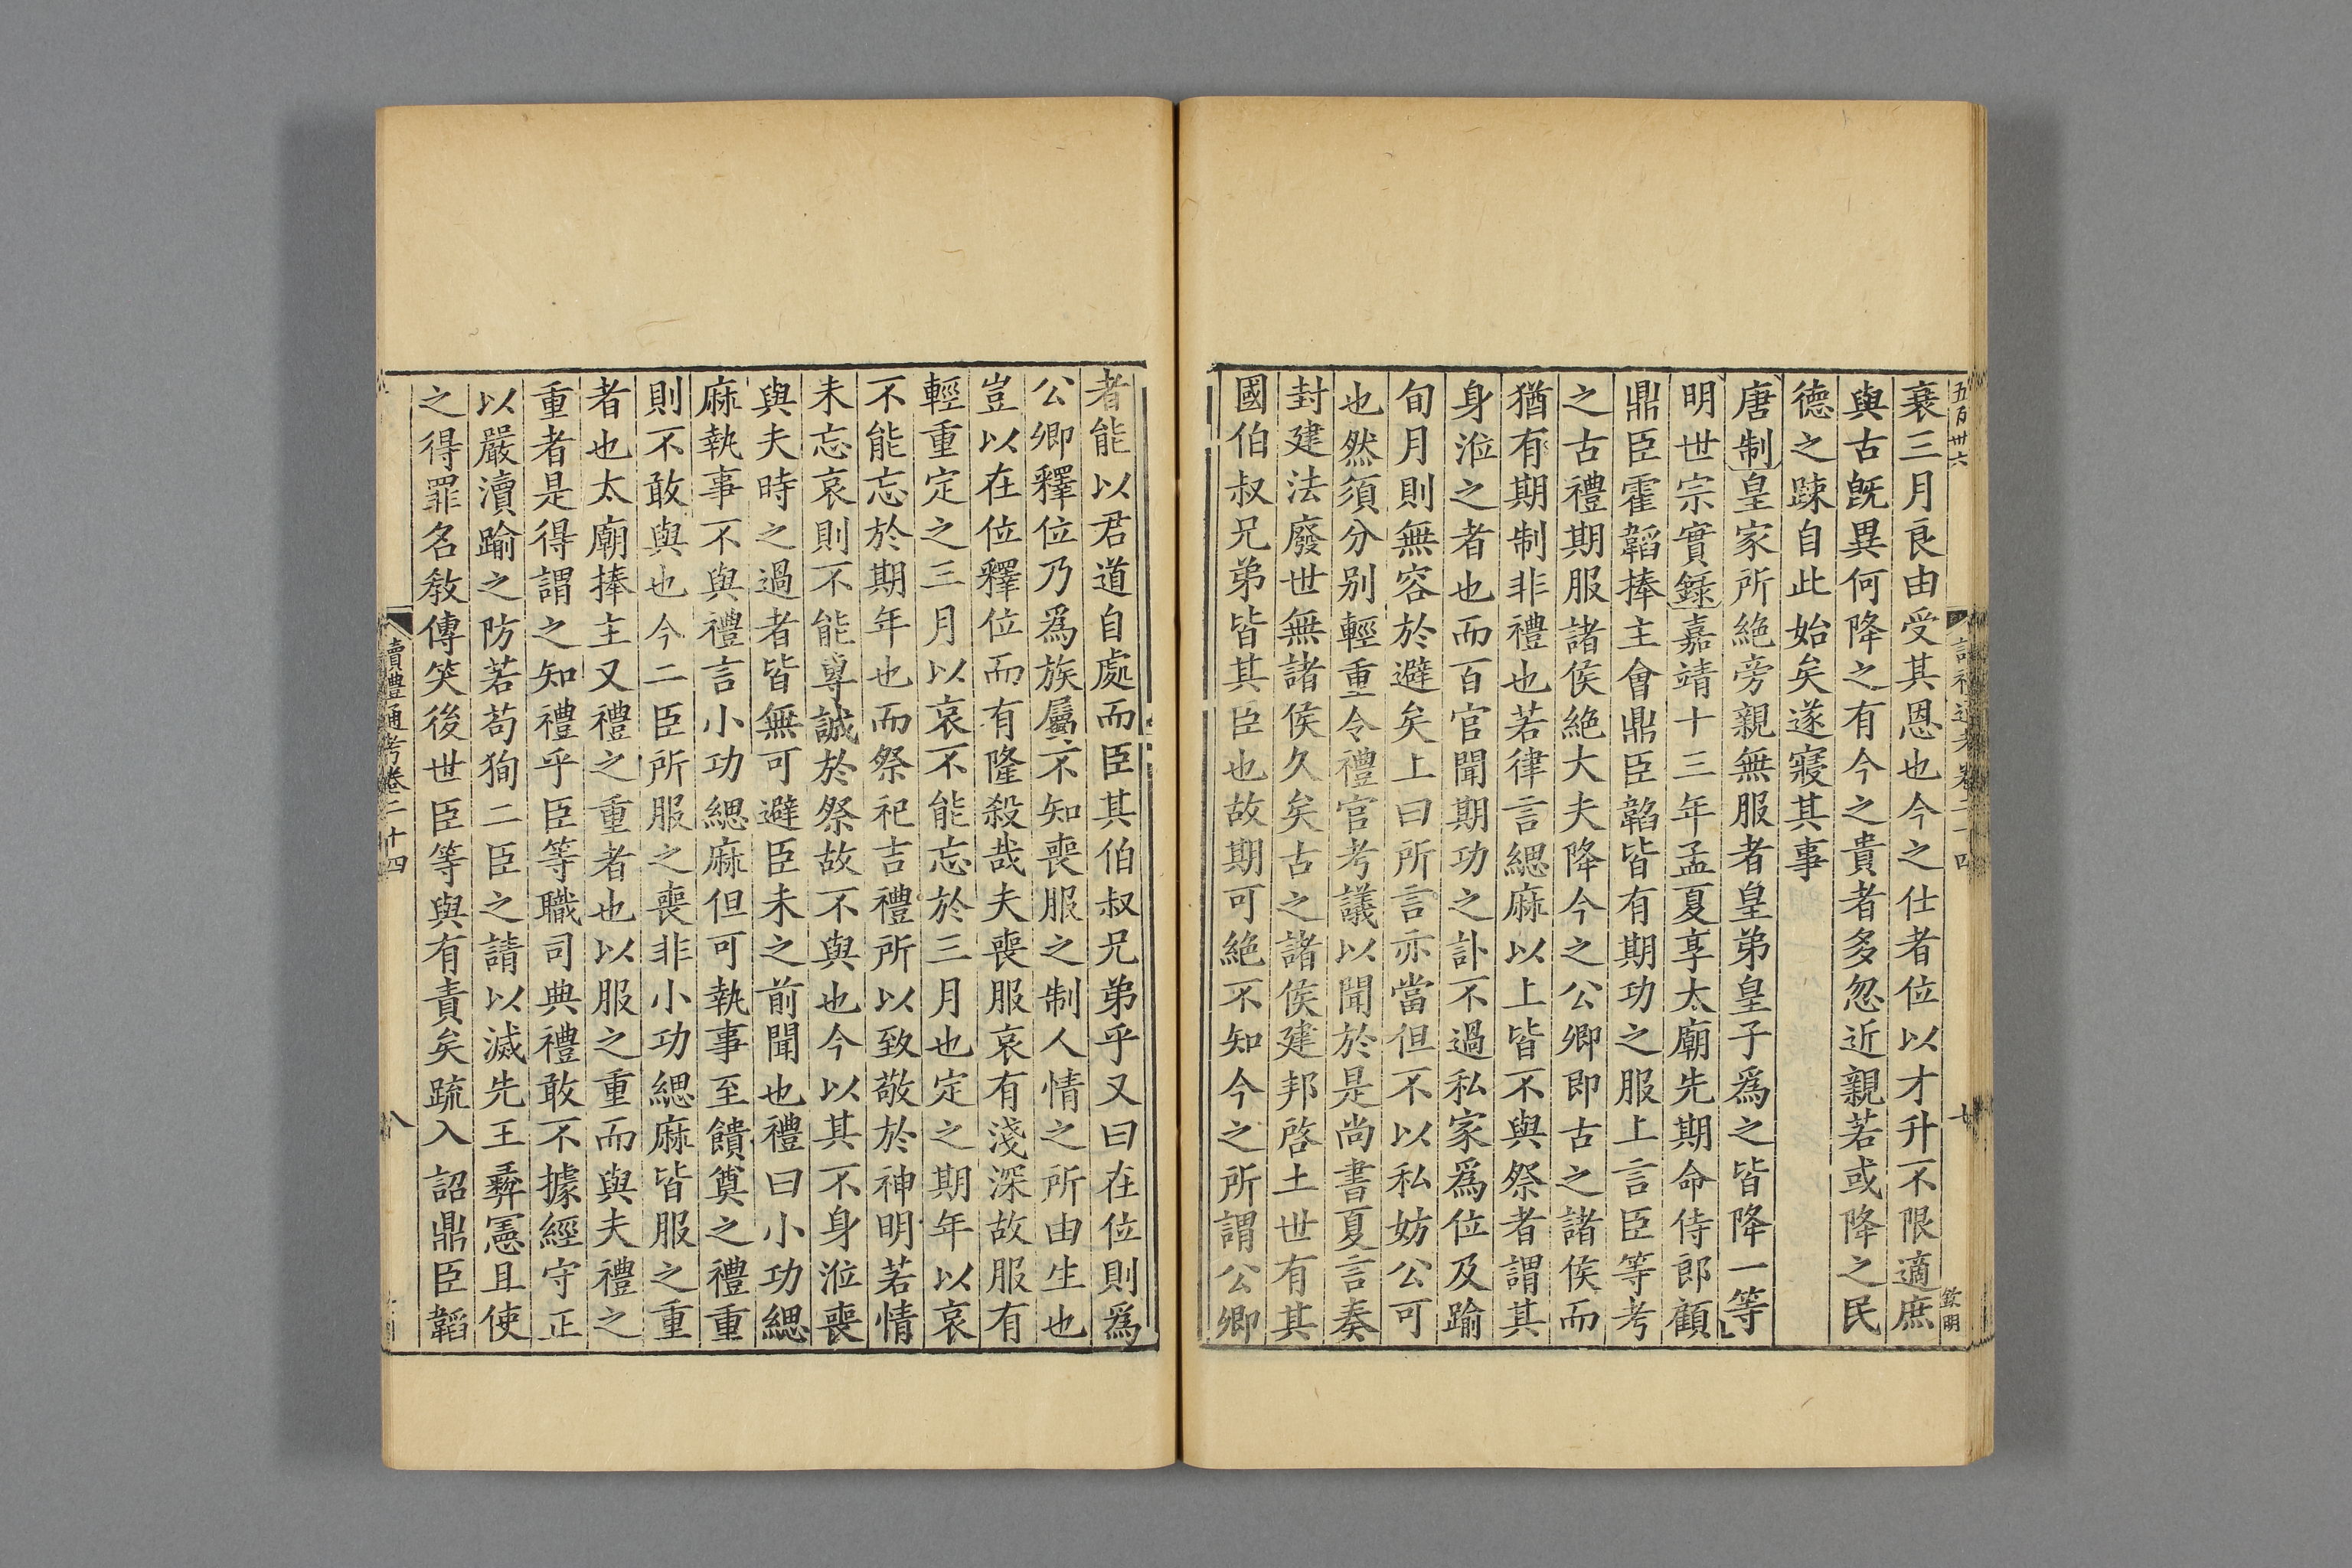 五百卅六
衰三月良由受其恩也今之仕者位以才升不限適庶
與古旣異何降之有今之貴者多忽近親若或降之民
德之踈自此始矣遂寢其事
唐制皇家所絕旁親無服者皇弟皇子爲之皆降一等
明世宗實錄嘉靖十三年孟夏享太廟先期命侍郎顧
鼎臣霍韜捧主會鼎臣韜皆有期功之服上言臣等考
之古禮期服諸侯絕大夫降今之公卿即古之諸侯而
猶有期制非禮也若律言緦麻以上皆不與祭者謂其
身涖之者也而百官聞期功之訃不過私家爲位及踰
旬月則無容於避矣上曰所言亦當但不以私妨公可
也然須分别輕重令禮官考議以聞於是尚書夏言奏
封建法廢世無諸侯久矣古之諸侯建邦啓土世有其
國伯叔兄弟皆其臣也故期可絕不知今之所謂公卿
者能以君道自處而臣其伯叔兄弟乎又曰在位則爲
公卿釋位乃爲族屬不知喪服之制人情之所由生也
豈以在位釋位而有隆殺哉夫喪服哀有淺深故服有
輕重定之三月以哀不能忘於三月也定之期年以哀
不能忘於期年也而祭祀吉禮所以致敬於神明若情
未忘哀則不能専誠於祭故不與也今以其不身涖喪
與夫時之過者皆無可避臣未之前聞也禮曰小功緦
麻執事不與禮言小功緦麻但可執事至饋奠之禮重
則不敢與也今二臣所服之喪非小功緦麻皆服之重
者也太廟捧主又禮之重者也以服之重而與夫禮之
重者是得謂之知禮乎臣等職司典禮敢不據經守正
以嚴瀆踰之防若苟狥二臣之請以滅先王彞憲且使
之得罪名敎傳笑後世臣等與有責矣疏入 詔鼎臣韜
讀禮通考卷二十四
八